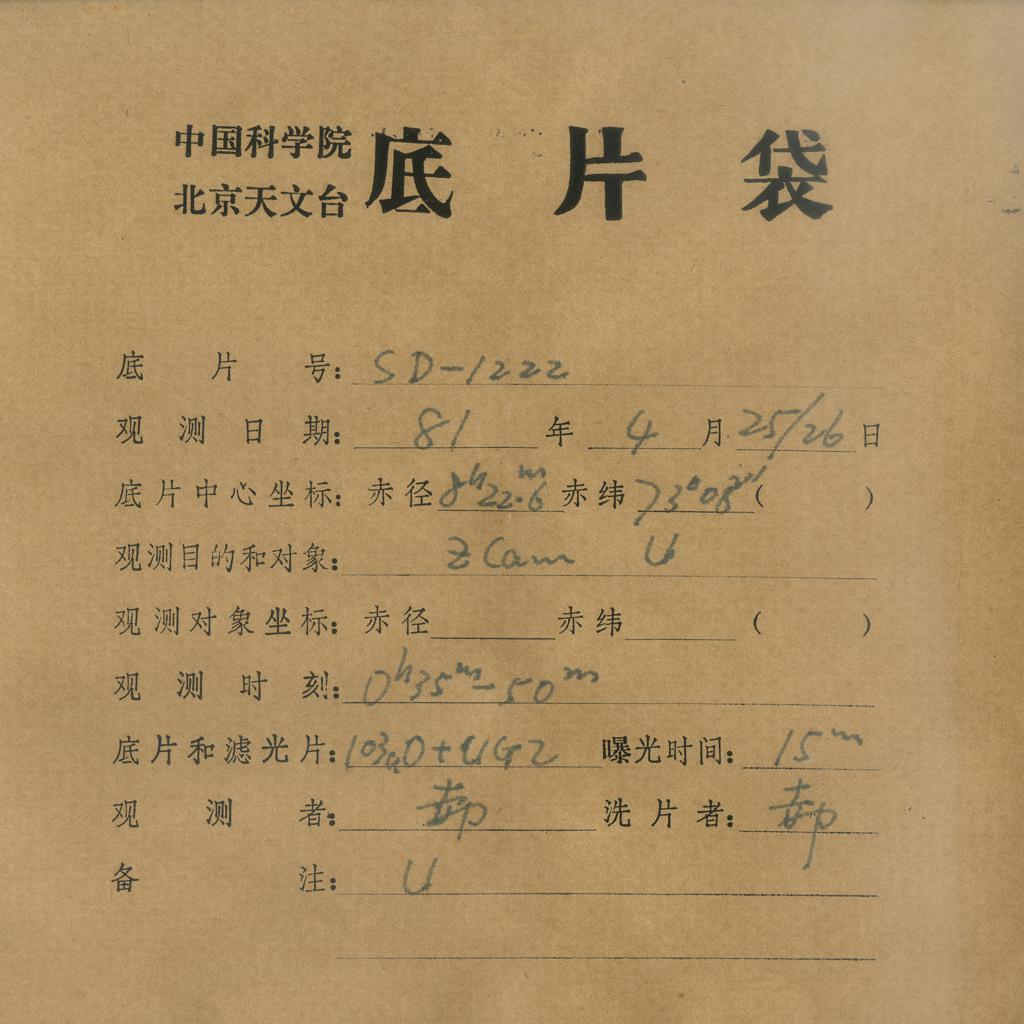 中国科学院
北京天文台
底片袋
底片号: SD-1222
观测日期: 81 年 4 月 25/26 日
底片中心坐标: 赤径 8h22.6m 赤纬 73°08' ( )
观测目的和对象: Z Cam U
观测对象坐标: 赤径 赤纬 ( )
观测时刻: 0h35m-50m
底片和滤光片: 103aO+UG2 曝光时间: 15m
观测者: 洗片者:
备注: U